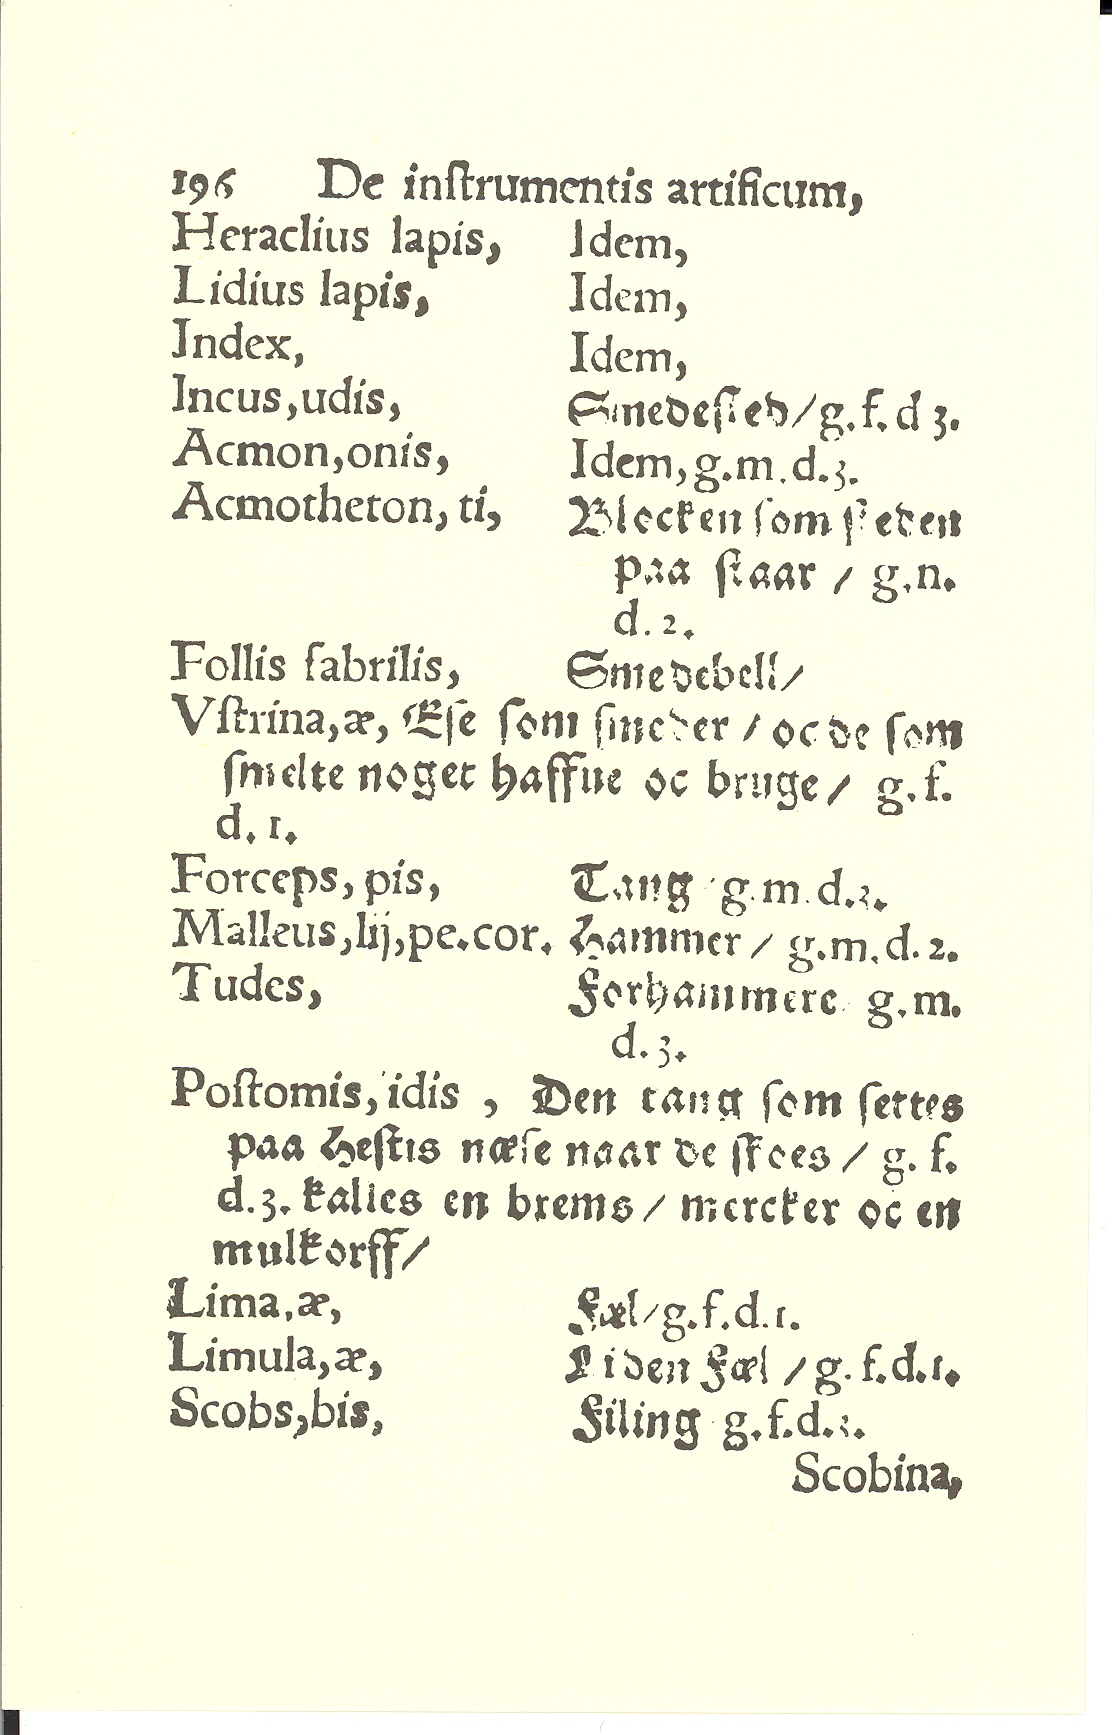 196 De instrumentis artificum,
Heraclius lapis, Idem,
Lidius lapis, Idem,
Index, Idem,
Incus,udis, Smedested/g.f.d 3.
Acmon,onis, Idem,g.m.d.3.
Acmotheton, ti, Blocken som steden
paa staar / g.n.
d.2.
Follis fabrilis, Smedebell/
Vstrina,æ, Ese som smeder / oc de som
smelte noget haffue oc bruge/ g.f.
d.1.
Forceps, pis, Tang g.m.d.3.
Malleus,lij,pe.cor. Hammer / g.m.d.2.
Tudes, Forhammere g.m.
d.3.
Postomis, idis , Den tang som settes
paa Hestis næse naar de skoes / g.f.
d.3. kalles en brems / mercker oc en
mulkorff/
Lima,æ, Fæl/g.f.d.1.
Limula,æ, Liden Fæl /g.f.d.1.
Scobs,bis, Filing g.f.d.3.
Scobina,